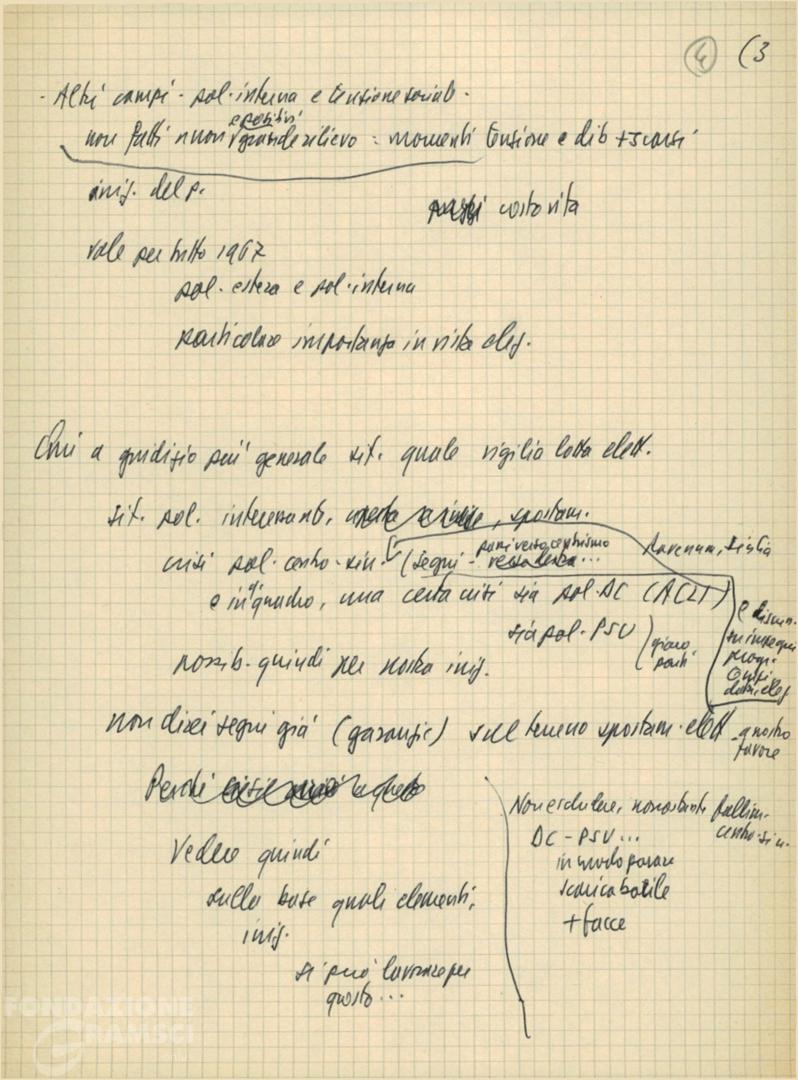 ④ (3
- Altri campi - pol. interna e tensione sociale.
e positivi
non fatti nuovi grande rilievo = momenti tensione e dib + scarsi
iniz. del p.
costo vita
vale per tutto 1967
pol. estera e pol. interna
particolare importanza in vista elez.
Qui a giudizio più generale sit. quale vigilia lotta elett.
sit. pol. interessante, spostam.
crisi pol. centro-sin. (segni - Ravenna, Sicilia
passi verso centrismo
e in quadro, una certa crisi sia pol. DC (ACLI)
sia pol. PSU
gioco
parti
possib. quindi per nostra iniz.
non direi segni già (garanzie) sul terreno spostam. elett. a nostro
favore
Perché
Vedere quindi
sulla base quali elementi,
iniz.
si può lavorare per
questo...
Non escludere, nonostante fallim.
centro-sin.
DC - PSU...
in modo parare
scarica barile
+ facce
FONDAZIONE
GRAMSCI